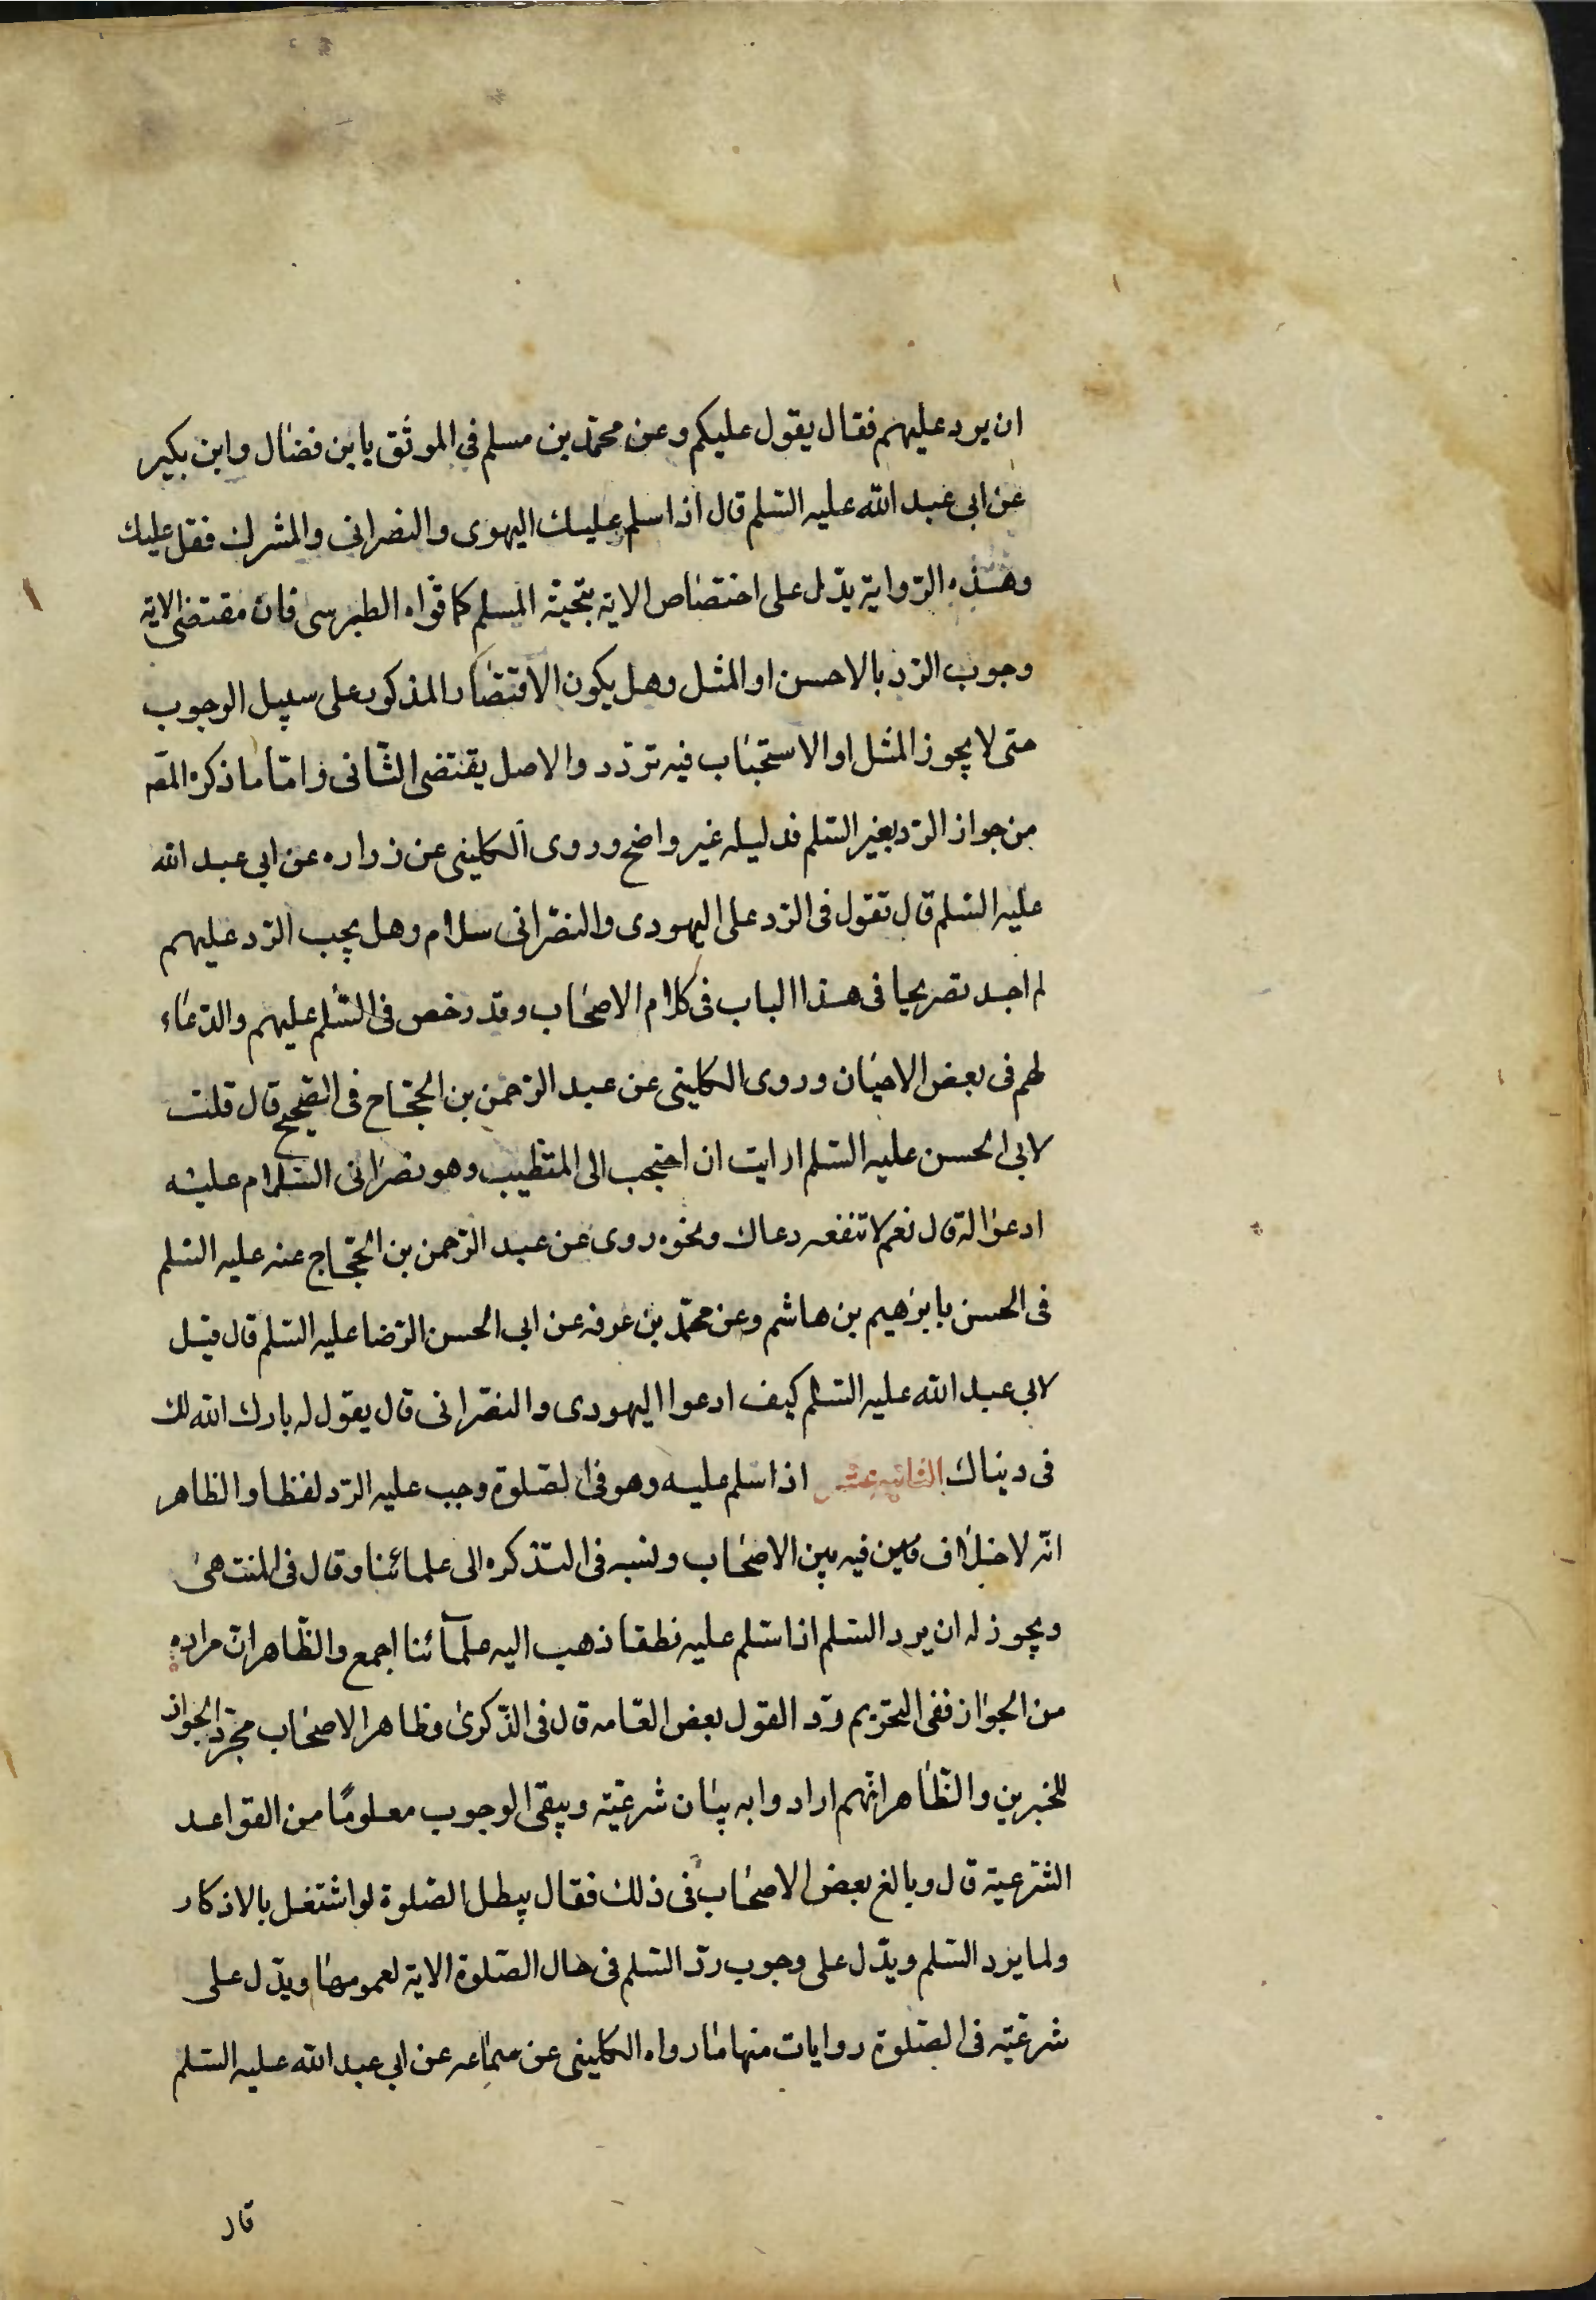 ان يرد عليهم فقال يقول عليكم وعن محمّد بن مسلم في الموثق بابن فضال وابن بكير
عن ابى عبد الله عليه السّلم قال اذا سلم عليك اليهوى والنصرانى والمشرك فقل عليك
وهذه الرّواية يدّل على اختصاص الاية بتحيّة المسلم كما قوّاه الطبرسى فان مقتضى الاية
وجوب الرّد بالاحسن او المثل وهل يكون الاقتصار المذكور على سبيل الوجوب
حتى لا يجوز المثل او الاستحباب فيه تردّد والاصل يقتضى الثّانى وامّا ما ذكره المّص
من جواز الرّد بغير السّلم فدليله غير واضح وروى الكلينى عن زراره عن ابى عبد الله
عليه السّلم قال تقول فى الرّد على اليهودى والنصّرانى سلام وهل يجب الرّد عليهم
لم اجد تصريحا فى هذا الباب فى كلام الاصحاب وقد رخص فى السّلم عليهم والدّعاء
لهم فى بعض الاحيان وروى الكلينى عن عبد الرّحمن بن الحجّاج فى الصّحيح قال قلت
لابى الحسن عليه السّلم ارايت ان احتجب الى المتطبب وهو نصرانى السّلام عليه
ادعو له قال نعم لا تنفعه دعاك ونحوه روى عن عبد الرّحمن بن الحجّاج عنه عليه السّلم
فى الحسن بابرهيم بن هاشم وعن محمّد بن عرفه عن ابى الحسن الرّضا عليه السّلم قال قيل
لابى عبد الله عليه السّلم كيف ادعوا اليهودى والنصّرانى قال يقول له بارك الله لك
فى دنياك الثانيه عشر اذا سلم عليه وهو فى الصّلوة وجب عليه الرّد لفظا والظاهر
انّه لا خلاف فيه بين الاصحاب ونسبه فى التّذكره الى علمائنا وقال فى المنتهى
ويجوز له ان يرد السّلم اذا سّلم عليه نطقا ذهب اليه علمآئنا اجمع والظّاهر انّ مراده
من الجواز نفى التحريم ردّ القول بعض العّامه قال فى الذّكرى وظاهر الاصحاب مجرّد الجواز
للخبرين والظّاهر انّهم ارادوا به بيان شرعيّته ويبقى الوجوب معلومًا من القواعد
الشّرعيّة قال وبالغ بعض الاصحاب فى ذلك فقال يبطل الصّلوة لو اشتغل بالاذكار
ولما يرد السّلم ويدّل على وجوب ردّ السّلم فى حال الصّلوة الاية لعمومها ويدّل على
شرعيّته فى الصّلوة روايات منها ما رواه الكلينى عن سماعه عن ابى عبد الله عليه السّلم
قال